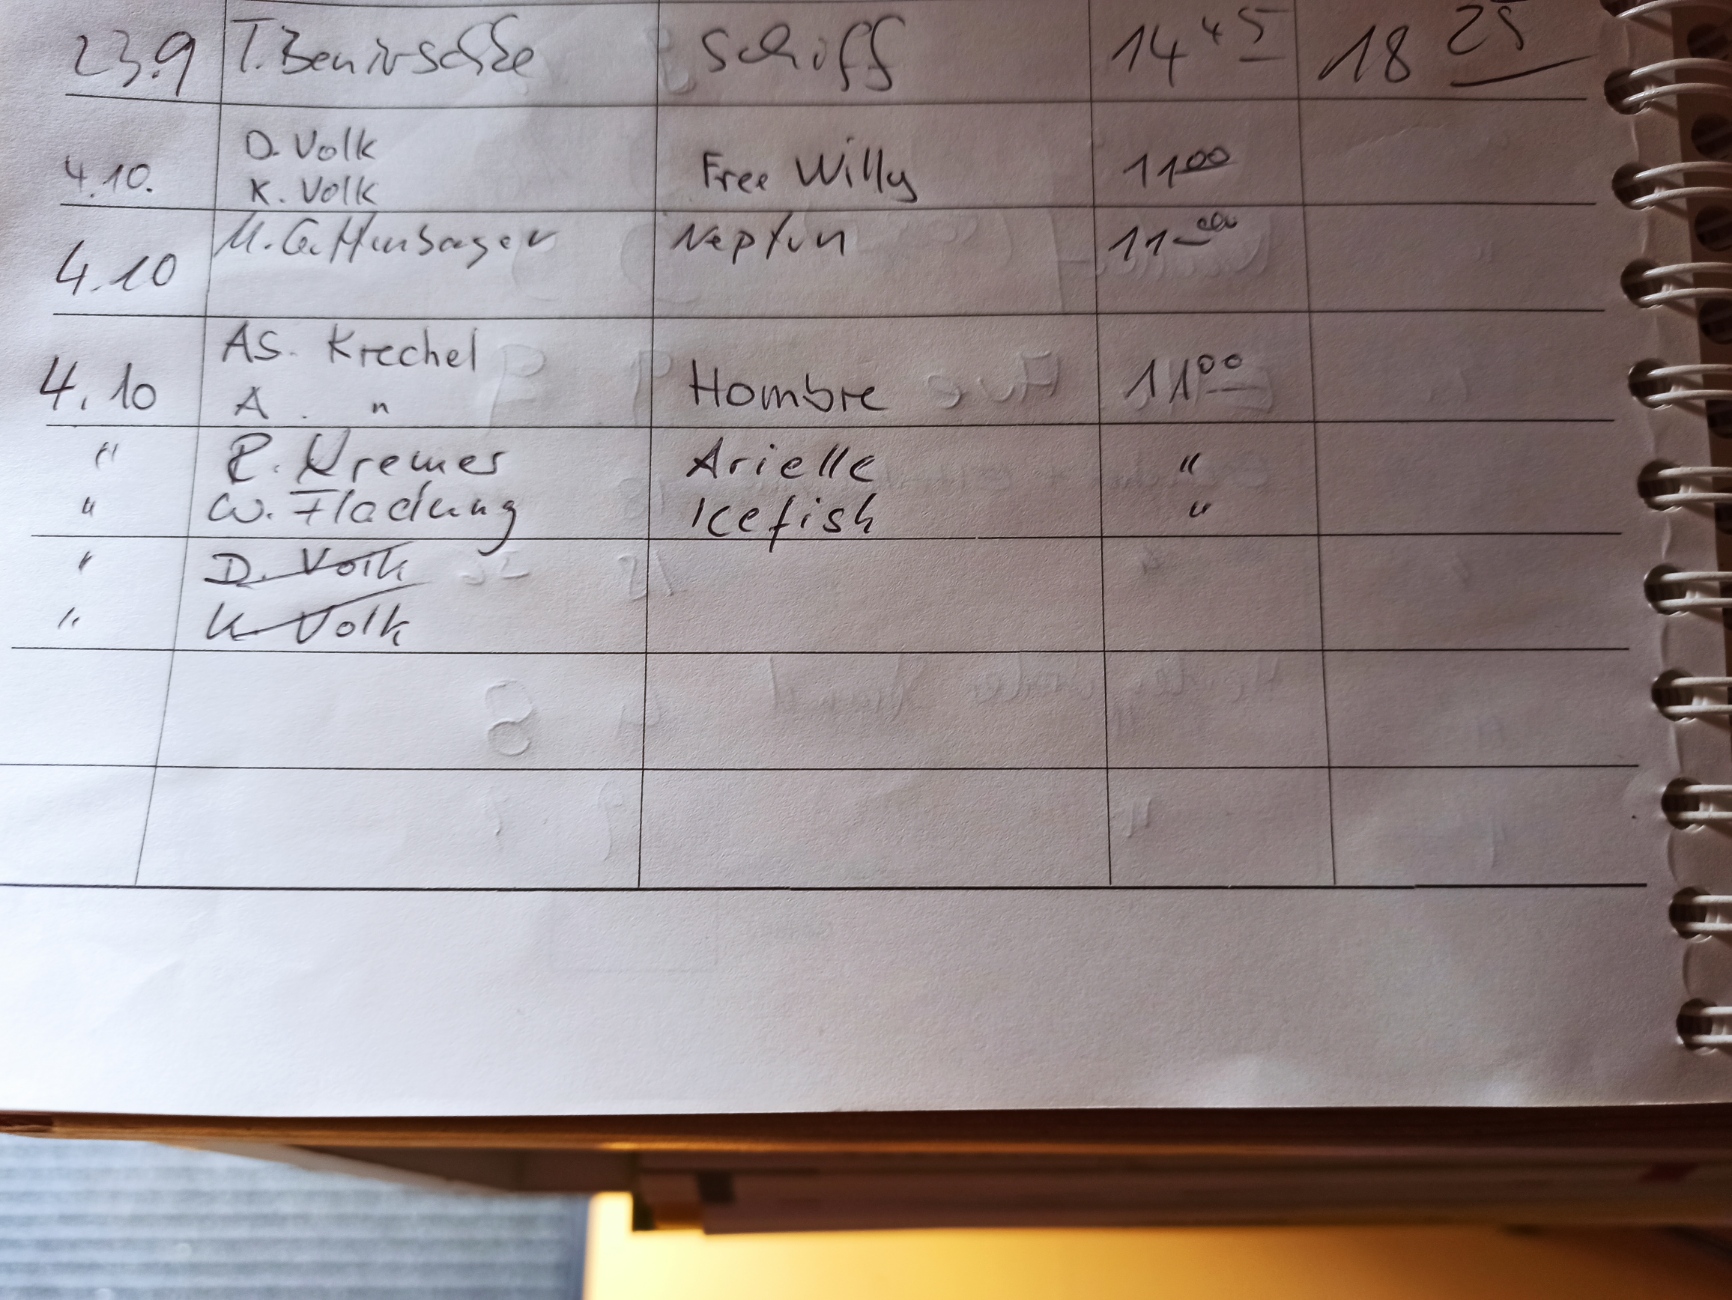 23.9 Schiff 14 45 18 25
D. Volk
4.10. Free Willy 11 00
K. Volk
M. Neptun 11
4.10
AS. Krechel
4.10 Hombre 11 00
A. "
" R. Kremer Arielle "
" W. Fladung Icefish "
" D. Volk
" K. Volk